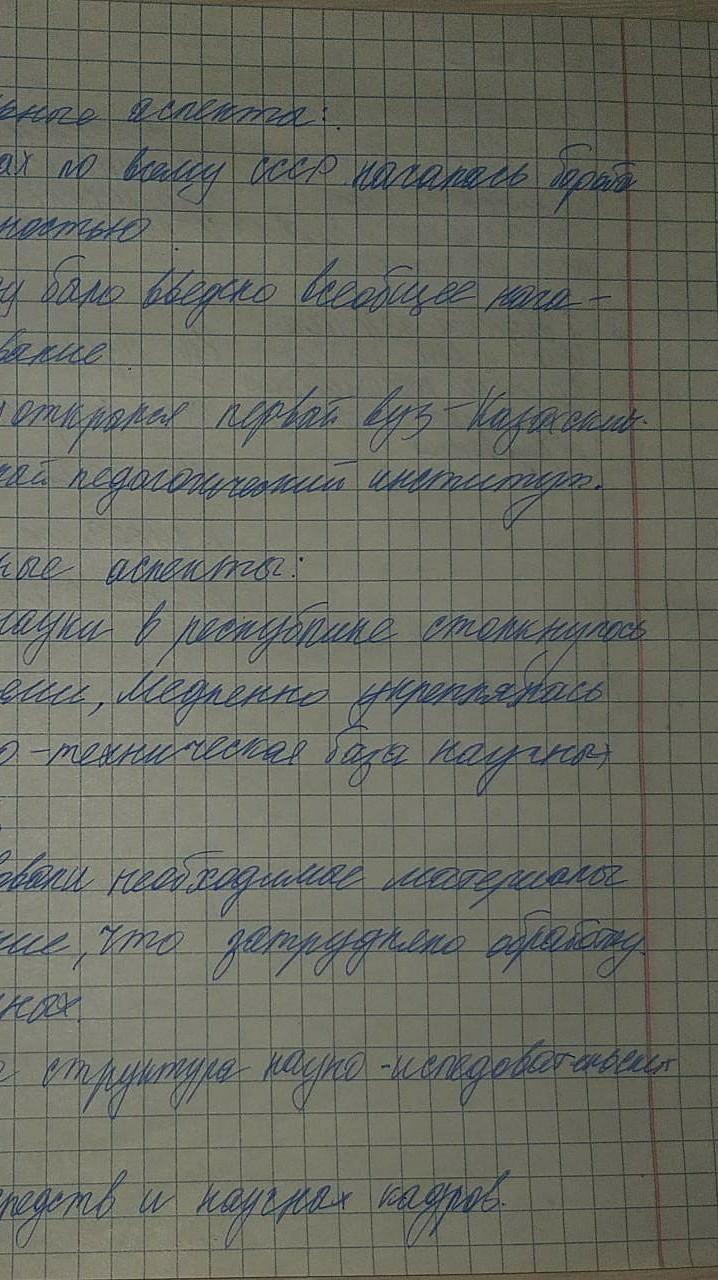 ьные аспекты:
ах по всему СССР началась борьба
ностью
ду было введено всеобщее нача-
вание
открылся первый вуз - Казахский
ный педагогический институт.
ные аспекты:
науки в республике столкнулось
ами, медленно укреплялась
о-техническая база научных
овали необходимые материалы
ние, что затрудняло обработку
ных.
структура научно-исследовательских
средств и научных кадров.